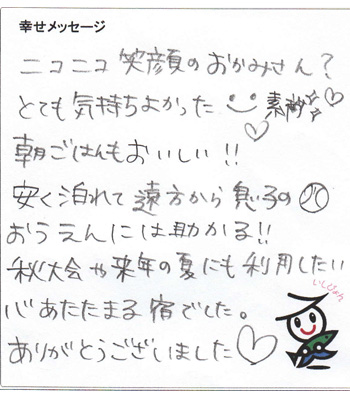 幸せメッセージ
ニコニコ 笑顔のおかみさん?
とても気持ちよかった 素敵
朝ごはんもおいしい!!
安く泊れて遠方から息子の
おうえんには助かる!!
秋大会や来年の夏にも利用したい
心あたたまる宿でした。
ありがとうございました
いしぴょん